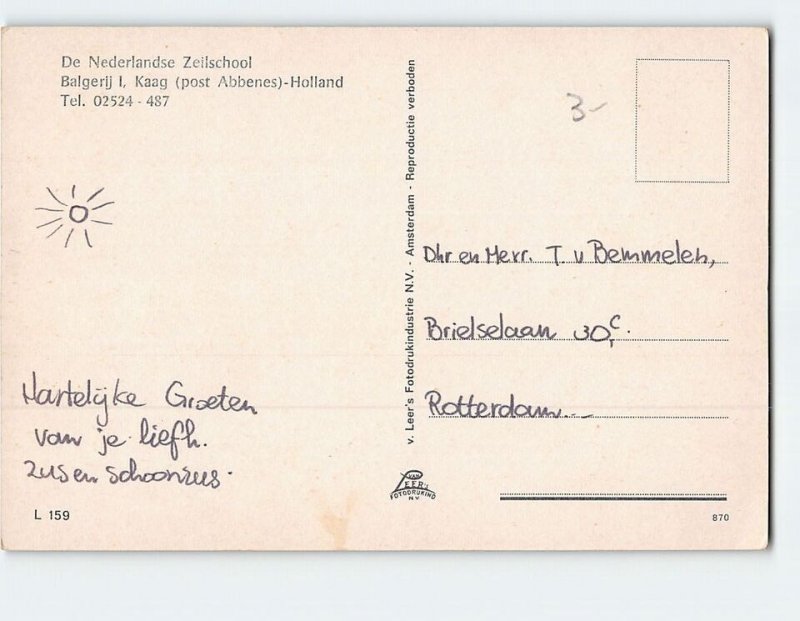 De Nederlandse Zeilschool
Balgerij I, Kaag (post Abbenes)-Holland
Tel. 02524 - 487
Hartelijke Groeten
van je liefh.
zus en schoonzus.
L 159
v. Leer's Fotodrukindustrie N.V. - Amsterdam - Reproductie verboden
VAN
LEER'S
FOTODRUKIND
N.V.
3-
Dhr en Mevr. T. v Bemmelen,
Brielselaan 30c.
Rotterdam.
870